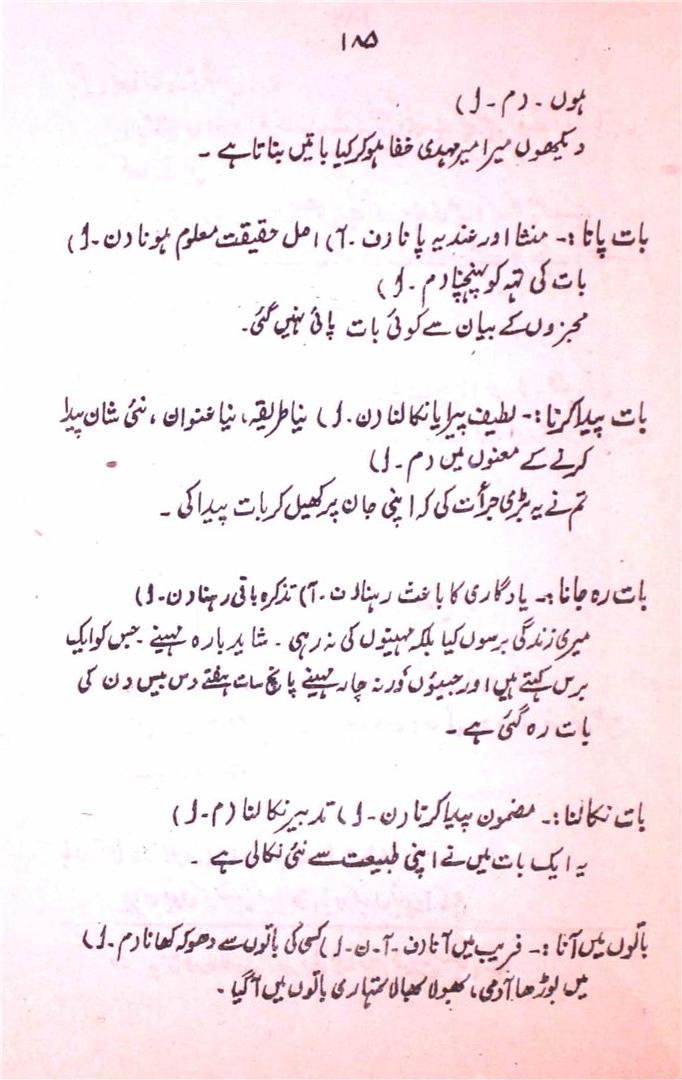 ۱۸۵
ہوں ۔ (م ۔ ا)
دیکھوں میرا میر مہدی خفا ہو کر کیا باتیں بناتا ہے ۔
بات پانا :۔ منشا اور عندیہ پانا (ف ۔ آ) اصل حقیقت معلوم ہونا (ن ۔ ا)
بات کی تہہ کو پہنچنا (م ۔ ا)
مجزوں کے بیان سے کوئی بات پائی نہیں گئی۔
بات پیدا کرنا :۔ لطیف پیرایا نکالنا (ن ۔ ا) نیا طریقہ، نیا عنوان ، نئی شان پیدا
کرنے کے معنوں میں (م ۔ ا)
تم نے یہ بڑی جرأت کی کہ اپنی جان پر کھیل کر بات پیدا کی ۔
بات رہ جانا :۔ یادگاری کا باعث رہنا (ن ۔ آ) تذکرہ باقی رہنا (ن ۔ ا)
میری زندگی برسوں کیا بلکہ مہینوں کی نہ رہی ۔ شاید بارہ مہینے جس کو ایک
برس کہتے ہیں اور جیوں ورنہ چار مہینے پانچ سات ہفتے دس بیس دن کی
بات رہ گئی ہے ۔
بات نکالنا :۔ مضمون پیدا کرنا (ن ۔ ا) تدبیر نکالنا (م ۔ ا)
یہ ایک بات میں نے اپنی طبیعت سے نئی نکالی ہے ۔
باتوں میں آنا :۔ فریب میں آنا (ف ۔ آ ۔ ن ۔ ا) کسی کی باتوں سے دھوکہ کھانا (م ۔ ا)
میں بوڑھا آدمی، بھولا بھالا تمہاری باتوں میں آ گیا ۔